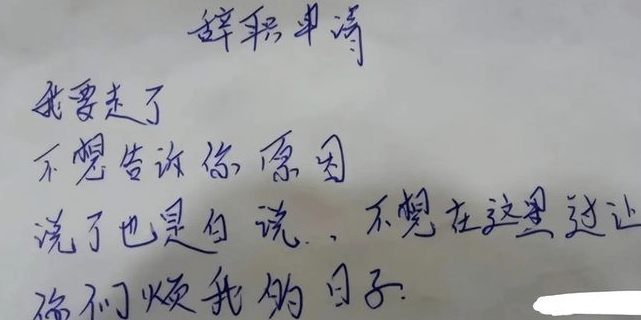 辞职申请
我要走了
不想告诉你原因
说了也是白说.. 不想在这里过让
你们烦我的日子.